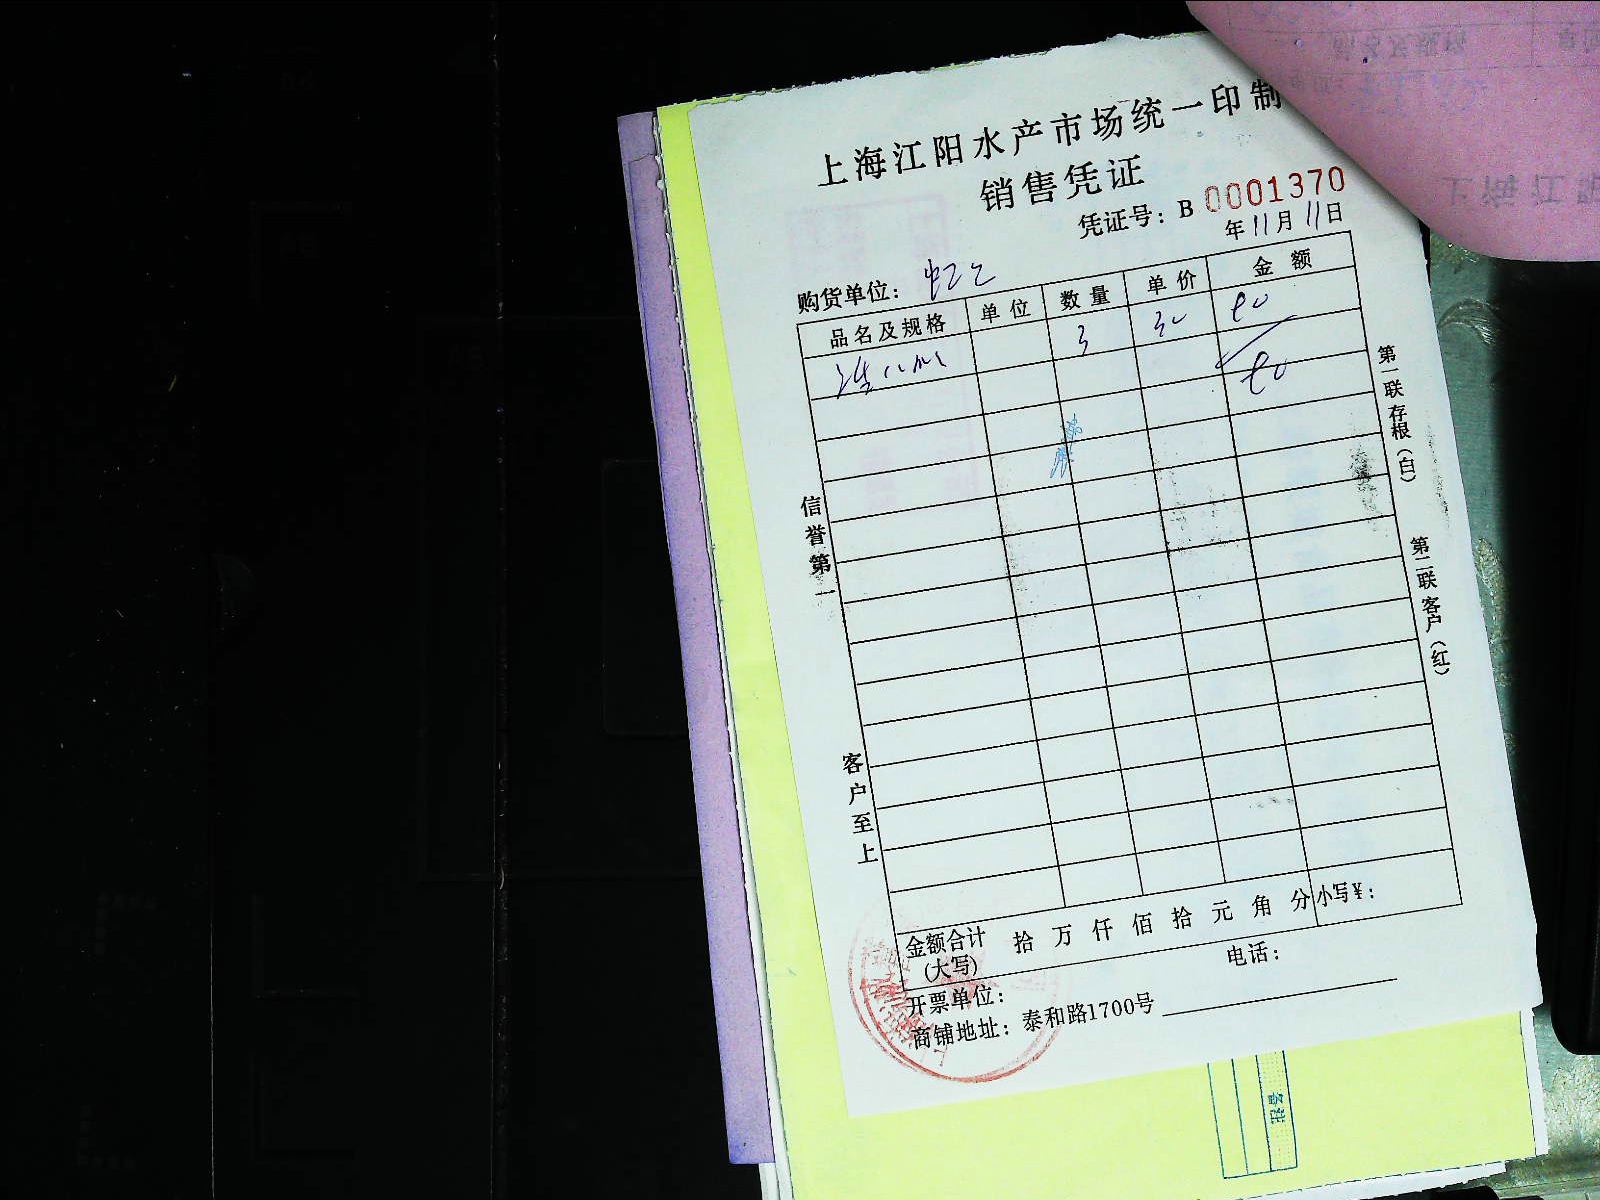 上海江阳水产市场统一印制
销售凭证
凭证号：B 0001370
年11月11日
购货单位：
品名及规格 单位 数量 单价 金额
3 30 90
90
信誉第一
客户至上
第一联存根（白）
第二联客户（红）
金额合计（大写） 拾 万 仟 佰 拾 元 角 分 小写¥：
开票单位： 电话：
商铺地址：泰和路1700号
备注